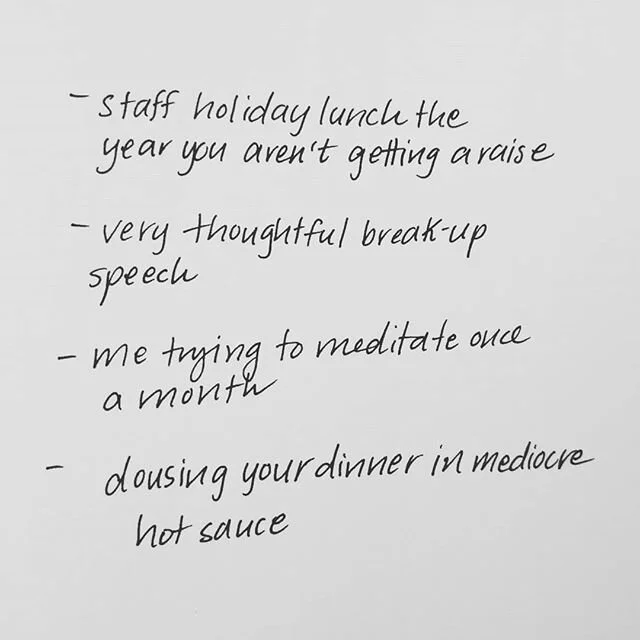 - staff holiday lunch the
year you aren't getting a raise
- very thoughtful break-up
speech
- me trying to meditate once
a month
- dousing your dinner in mediocre
hot sauce